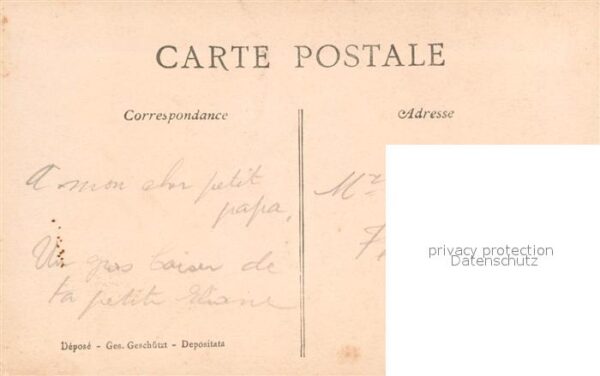 CARTE POSTALE
Correspondance
Adresse
A mon cher petit
papa,
Un gros baiser de
ta petite
Mr
privacy protection
Datenschutz
Déposé - Ges. Geschützt - Depositata